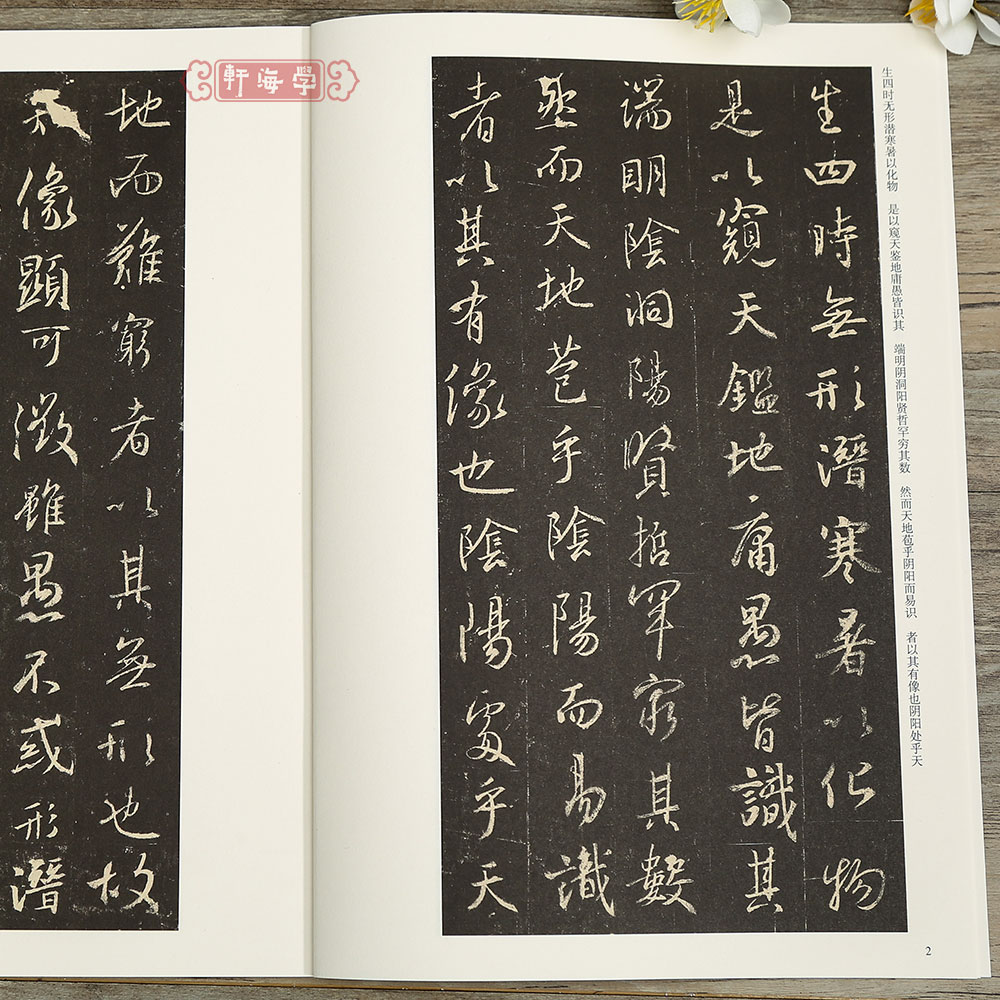 學海軒
生四时无形潜寒暑以化物 是以窥天鉴地庸愚皆识其 端明阴洞阳贤哲罕穷其数 然而天地苞乎阴阳而易识 者以其有像也阴阳处乎天
生四時無形潛寒暑以化物
是以窺天鑑地庸愚皆識其
端明陰洞陽賢哲罕窮其數
然而天地苞乎陰陽而易識
者以其有像也陰陽處乎天
2
地而難窮者以其無形也故
像顯可徵雖愚不惑形潛